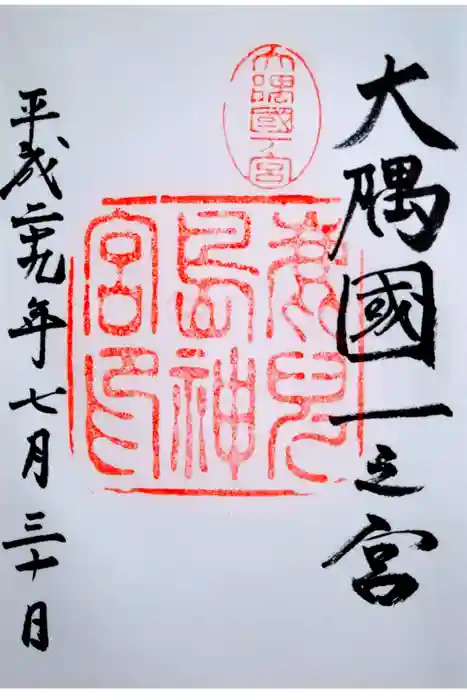 大隅國一之宮
大隅國一宮
鹿兒
島神
宮印
平成二十九年七月三十日